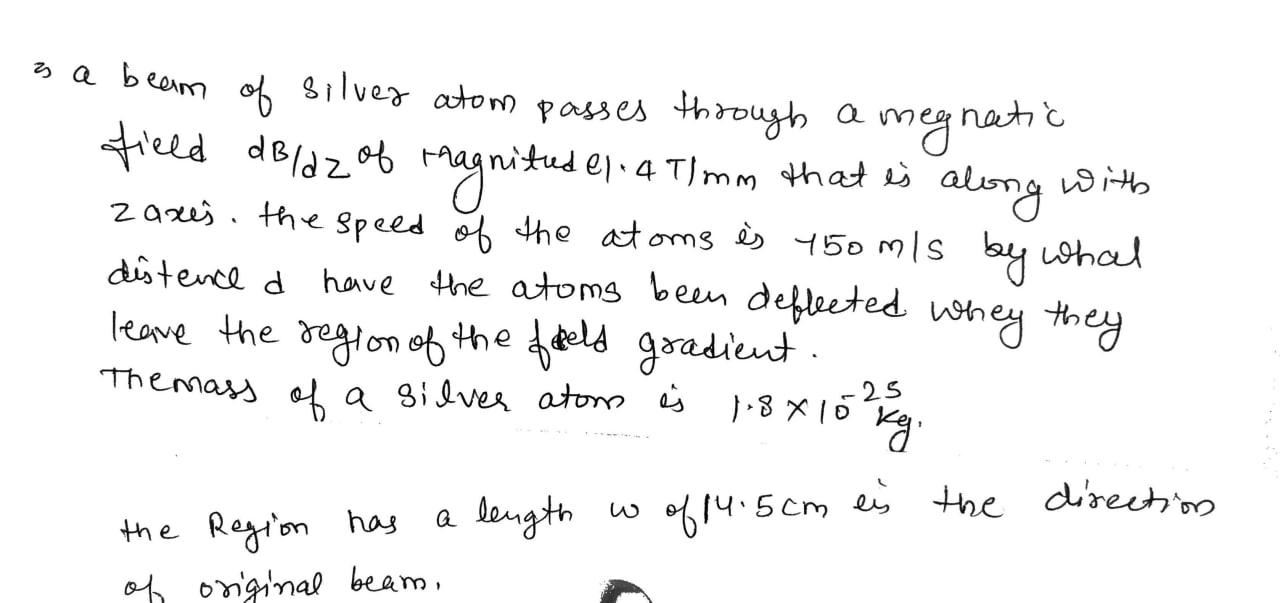 a beam of silver atom passes through a megnatic
field dB/dz of magnitude 1.4 T/mm that is along with
z axes. the speed of the atoms is 750 m/s by what
distence d have the atoms been deflected whey they
leave the region of the field gradient.
The mass of a silver atom is 1.8 × 10^-25 kg.
the Region has a length w of 14.5 cm is the direction
of original beam.